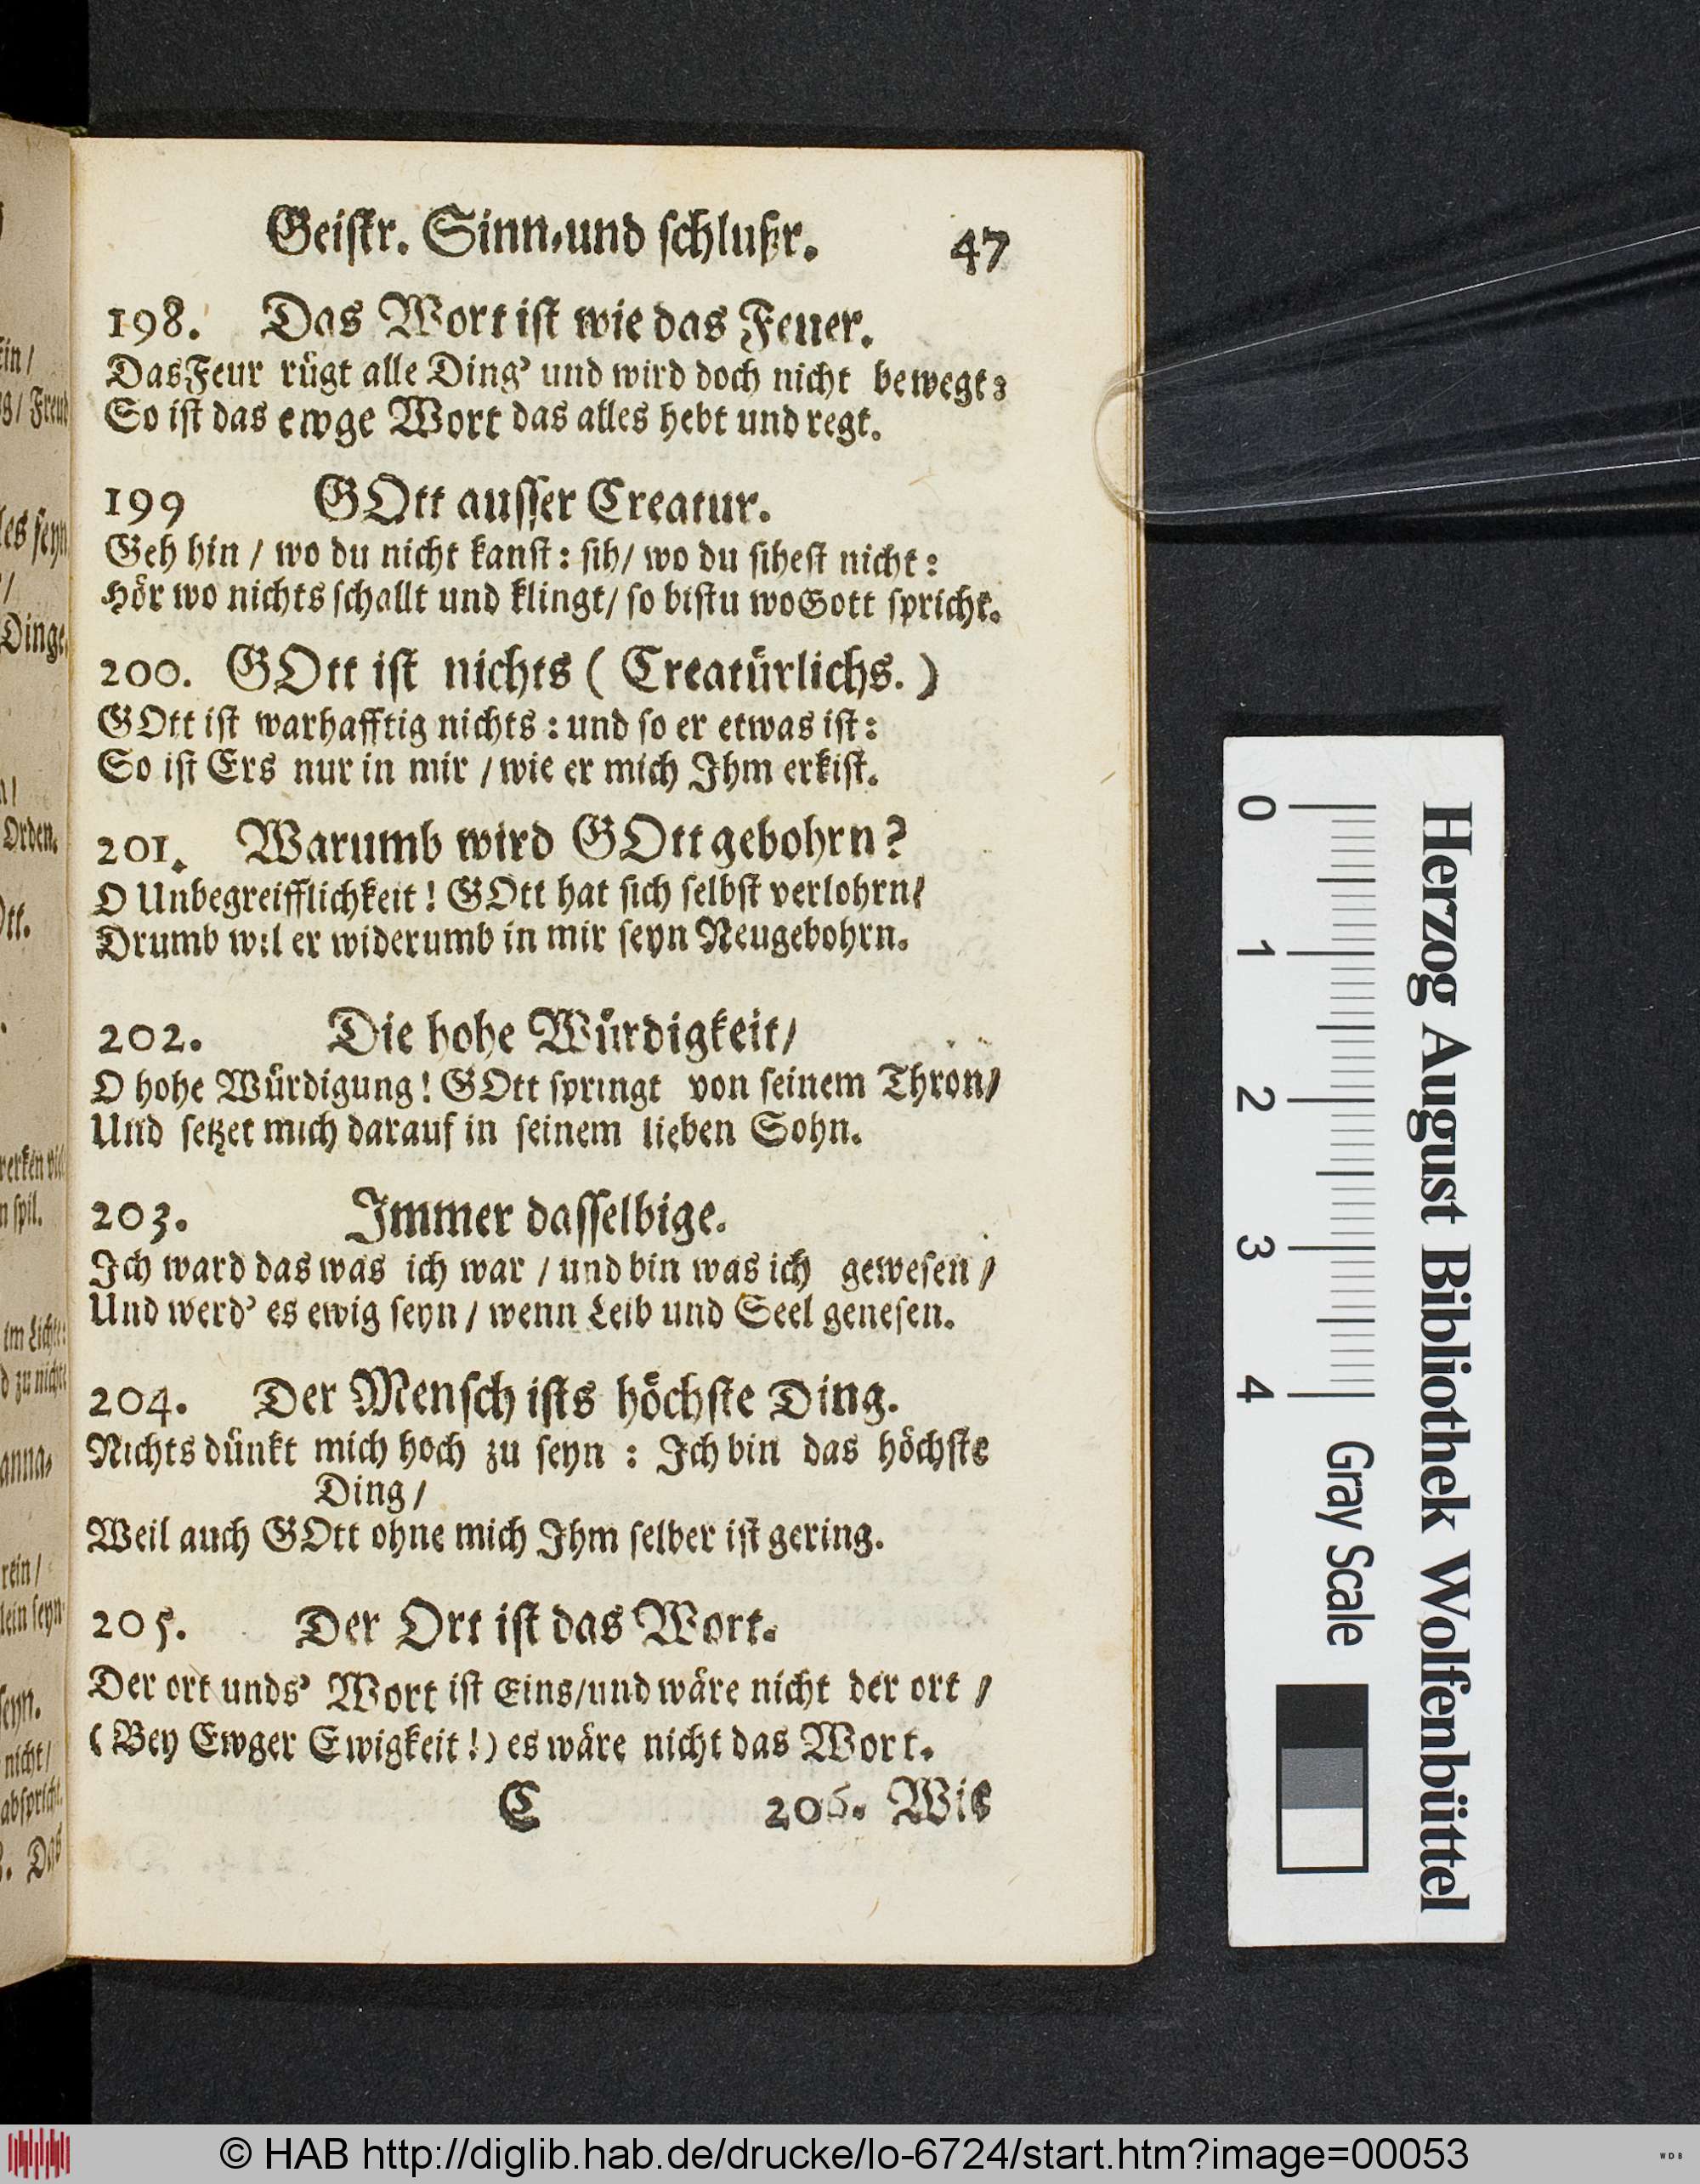 Geistr. Sinn-und schlußr. 47
198. Das Wort ist wie das Feuer.
Das Feur rügt alle Ding' und wird doch nicht bewegt:
So ist das ewge Wort das alles hebt und regt.
199 GOtt ausser Creatur.
Geh hin / wo du nicht kanst: sih/ wo du sihest nicht:
Hör wo nichts schallt und klingt/ so bistu wo Gott spricht.
200. GOtt ist nichts ( Creatürlichs. )
GOtt ist warhafftig nichts: und so er etwas ist:
So ist Ers nur in mir / wie er mich Ihm erkist.
201. Warumb wird GOtt gebohrn?
O Unbegreifflichkeit! GOtt hat sich selbst verlohrn/
Drumb wil er widerumb in mir seyn Neugebohrn.
202. Die hohe Würdigkeit/
O hohe Würdigung! GOtt springt von seinem Thron/
Und setzet mich darauf in seinem lieben Sohn.
203. Immer dasselbige.
Ich ward das was ich war / und bin was ich gewesen /
Und werd' es ewig seyn / wenn Leib und Seel genesen.
204. Der Mensch ists höchste Ding.
Nichts dünkt mich hoch zu seyn: Ich bin das höchste
Ding /
Weil auch GOtt ohne mich Ihm selber ist gering.
205. Der Ort ist das Wort.
Der ort unds' Wort ist Eins/und wäre nicht der ort /
(Bey Ewger Ewigkeit!) es wäre nicht das Wort.
C 206. Wie
Herzog August Bibliothek Wolfenbüttel
0 1 2 3 4 Gray Scale
© HAB http://diglib.hab.de/drucke/lo-6724/start.htm?image=00053